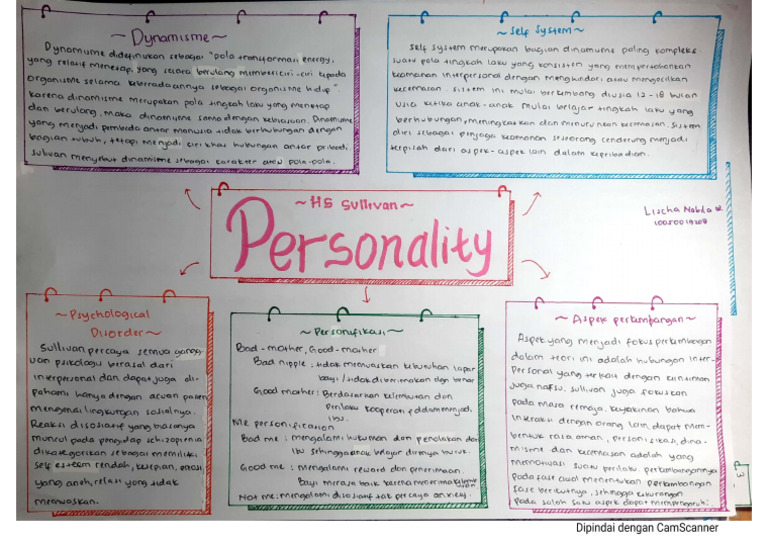 ~ Dynamisme ~
Dynamisme didefinisikan sebagai "pola transformasi energy,
yang relatif menetap, yang secara berulang memberi ciri-ciri kepada
organisme selama keberadaannya sebagai organisme hidup".
karena dinamisme merupakan pola tingkah laku yang menetap
dan berulang, maka dinamisme sama dengan kebiasaan. Dinamisme
yang menjadi pembeda antar manusia tidak berhubungan dengan
bagian tubuh, tetapi menjadi ciri khas hubungan antar pribadi,
sulivan menyebut dinamisme sebagai karakter atau pola-pola.
~ Self System ~
Self system merupakan bagian dinamisme paling kompleks.
suatu pola tingkah laku yang konsisten yang mempertahankan
keamanan interpersonal dengan menghindari atau mengecilkan
kecemasan. sistem ini mulai berkembang diusia 12-18 bulan
usia ketika anak-anak mulai belajar tingkah laku yang
berhubungan, meningkatkan dan menurunkan kecemasan. Sistem
diri sebagai penjaga keamanan seseorang cenderung menjadi
terpisah dari aspek-aspek lain dalam kepribadian.
~ HS Sullivan ~
Personality
Lischa Nabila
~ Psychological
Disorder ~
Sullivan percaya semua
psikologi berasal dari
interpersonal dan dapat juga di-
pahami hanya dengan acuan
mengenai lingkungan sosialnya.
Reaksi disosiatif yang biasanya
muncul pada pengidap schizoprenia
dikategorikan sebagai memiliki
self esteem rendah,
yang aneh, relasi yang tidak
memuaskan.
~ Personifikasi ~
Bad-mother, Good-mother
Bad nipple : tidak memuaskan kebutuhan lapar
bayi / tidak diberi makan dgn benar
Good mother : Berdasarkan kelembutan dan
Perilaku kooperatif ddam menjadi
ibu.
Me personification
Bad me : mengalami hukuman dan penolakan dari
ibu sehingga anak belajar dirinya buruk.
Good me : mengalami reward dan penerimaan.
Bayi merasa baik karena menerima
Not me : mengalami disosiasi tdk percaya anxiety.
~ Aspek perkembangan ~
Aspek yang menjadi fokus perkembangan
dalam teori ini adalah hubungan inter-
personal yang terkait dengan keintiman
juga nafsu. sullivan juga fokuskan
pada masa remaja. keyakinan bahwa
interaksi dengan orang lain dapat mem-
bentuk rasa aman, personifikasi, dina-
misme dan kecemasan adalah yang
memotivasi suatu perilaku. perkembangannya
pada fase awal menentukan perkembangan
fase berikutnya, sehingga kekurangan
pada salah satu aspek dapat mempengaruhi.
Dipindai dengan CamScanner